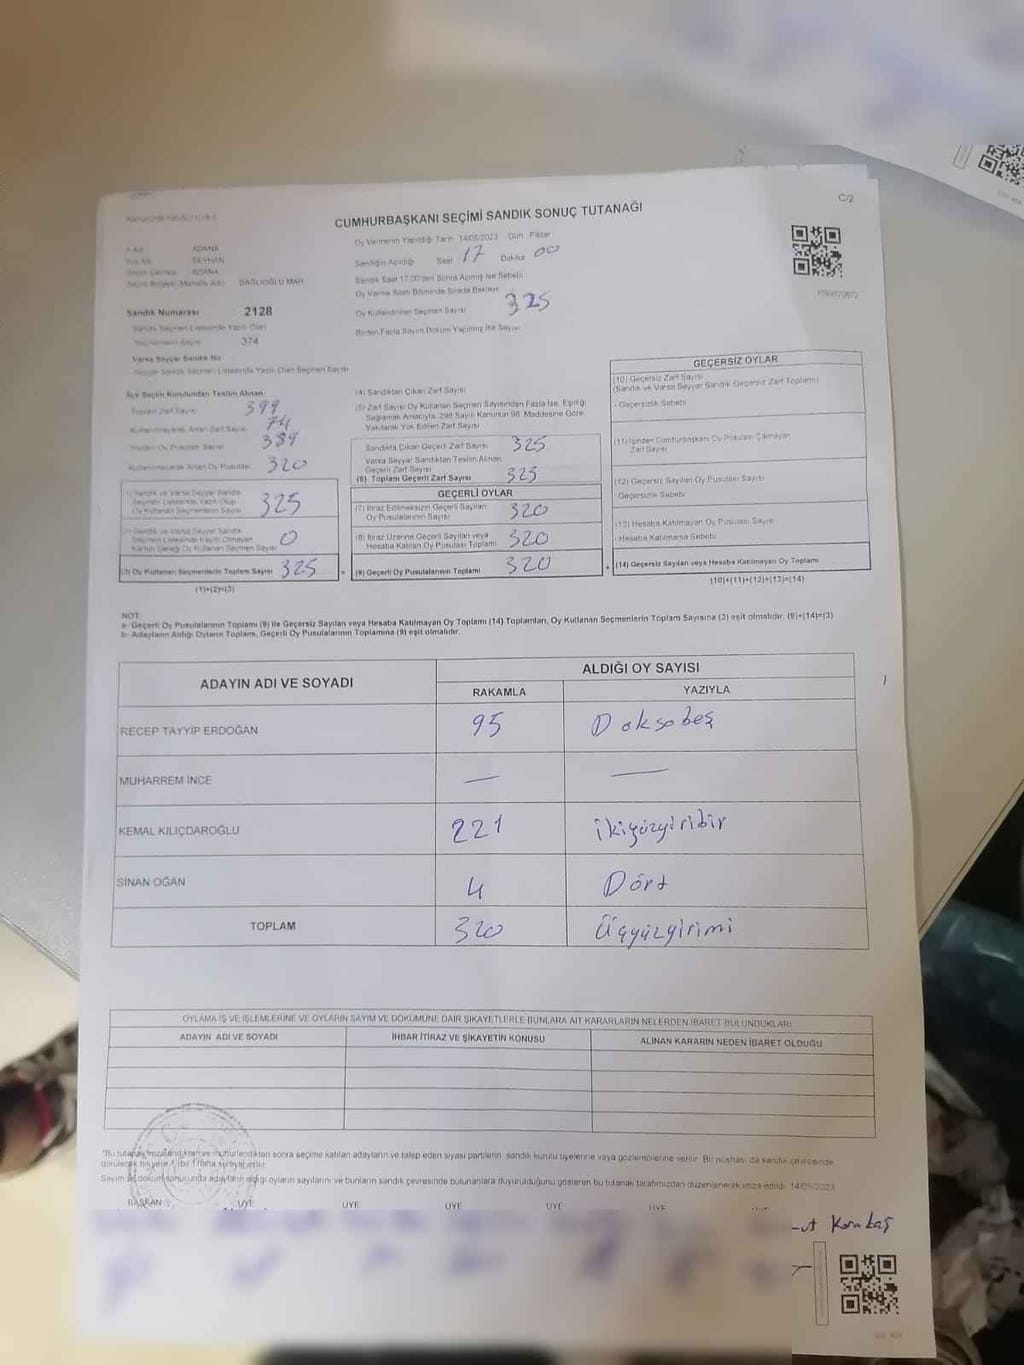 C/2
CUMHURBAŞKANI SEÇİMİ SANDIK SONUÇ TUTANAĞI
Oy Vermenin Yapıldığı Tarih 14/05/2023 Gün Pazar
ADANA
Sandığın Açıldığı Saat 17 Dakika 00
SEYHAN
ADANA
Sandık Saat 17:00'den Sonra Açılmış İse Sebebi
DAĞLIOĞLU MAH
Oy Verme Saati Bitiminde Sırada Bekleyen
Sandık Numarası 2128
Oy Kullandırılan Seçmen Sayısı 325
Sandık Seçmen Listesinde Yazılı Olan
Seçmenlerin Sayısı 374
Birden Fazla Sayım Döküm Yapılmış İse Sayısı
Varsa Seyyar Sandık No
Seyyar Sandık Seçmen Listesinde Yazılı Olan Seçmen Sayısı
İlçe Seçim Kurulundan Teslim Alınan
Toplam Zarf Sayısı 399
Kullanılmayarak Artan Zarf Sayısı 74
389
Kullanılmayarak Artan Oy Pusulası 320
(1) Sandık ve Varsa Seyyar Sandık
Seçmen Listesinde Yazılı Olup
Oy Kullanan Seçmenlerin Sayısı 325
(2) Sandık ve Varsa Seyyar Sandık
Seçmen Listesinde Kayıtlı Olmayan
Kanun Gereği Oy Kullanan Seçmen Sayısı 0
(3) Oy Kullanan Seçmenlerin Toplam Sayısı 325
(1)+(2)=(3)
(4) Sandıktan Çıkan Zarf Sayısı
(5) Zarf Sayısı Oy Kullanan Seçmen Sayısından Fazla İse, Eşitliği
Sağlamak Amacıyla, 298 Sayılı Kanunun 98. Maddesine Göre
Yakılarak Yok Edilen Zarf Sayısı
Sandıkta Çıkan Geçerli Zarf Sayısı 325
Varsa Seyyar Sandıktan Teslim Alınan
Geçerli Zarf Sayısı
(6) Toplam Geçerli Zarf Sayısı 325
GEÇERLİ OYLAR
(7) İtiraz Edilmeksizin Geçerli Sayılan
Oy Pusulalarının Sayısı 320
(8) İtiraz Üzerine Geçerli Sayılan veya
Hesaba Katılan Oy Pusulası Toplamı 320
(9) Geçerli Oy Pusulalarının Toplamı 320
GEÇERSİZ OYLAR
(10) Geçersiz Zarf Sayısı
(Sandık ve Varsa Seyyar Sandık Geçersiz Zarf Toplamı)
- Geçersizlik Sebebi
(11) İçinden Cumhurbaşkanı Oy Pusulası Çıkmayan
Zarf Sayısı
(12) Geçersiz Sayılan Oy Pusulası Sayısı
Geçersizlik Sebebi
(13) Hesaba Katılmayan Oy Pusulası Sayısı
- Hesaba Katılmama Sebebi
(14) Geçersiz Sayılan veya Hesaba Katılmayan Oy Toplamı
(10)+(11)+(12)+(13)=(14)
NOT:
a- Geçerli Oy Pusulalarının Toplamı (9) ile Geçersiz Sayılan veya Hesaba Katılmayan Oy Toplamı (14) Toplamları, Oy Kullanan Seçmenlerin Toplam Sayısına (3) eşit olmalıdır. (9)+(14)=(3)
b- Adayların Aldığı Oyların Toplamı, Geçerli Oy Pusulalarının Toplamına (9) eşit olmalıdır.
ADAYIN ADI VE SOYADI
ALDIĞI OY SAYISI
RAKAMLA YAZIYLA
RECEP TAYYİP ERDOĞAN 95 Doksabeş
MUHARREM İNCE — —
KEMAL KILIÇDAROĞLU 221 ikiyüzyiribir
SİNAN OĞAN 4 Dört
TOPLAM 320 üçyüzyirimi
OYLAMA İŞ VE İŞLEMLERİNE VE OYLARIN SAYIM VE DÖKÜMÜNE DAİR ŞİKAYETLERLE BUNLARA AİT KARARLARIN NELERDEN İBARET BULUNDUKLARI
ADAYIN ADI VE SOYADI İHBAR İTİRAZ VE ŞİKAYETİN KONUSU ALINAN KARARIN NEDEN İBARET OLDUĞU
sonra seçime katılan adayların ve talep eden siyasi partilerin sandık kurulu üyelerine veya gözlemcilerine verilir. Bir nüshası da sandık çevresinde
adayların aldığı oyların sayılarını ve bunların sandık çevresinde bulunanlara duyurulduğunu gösteren bu tutanak tarafımızdan düzenlenerek imza edildi. 14/05/2023
BAŞKAN ÜYE ÜYE ÜYE ÜYE ÜYE